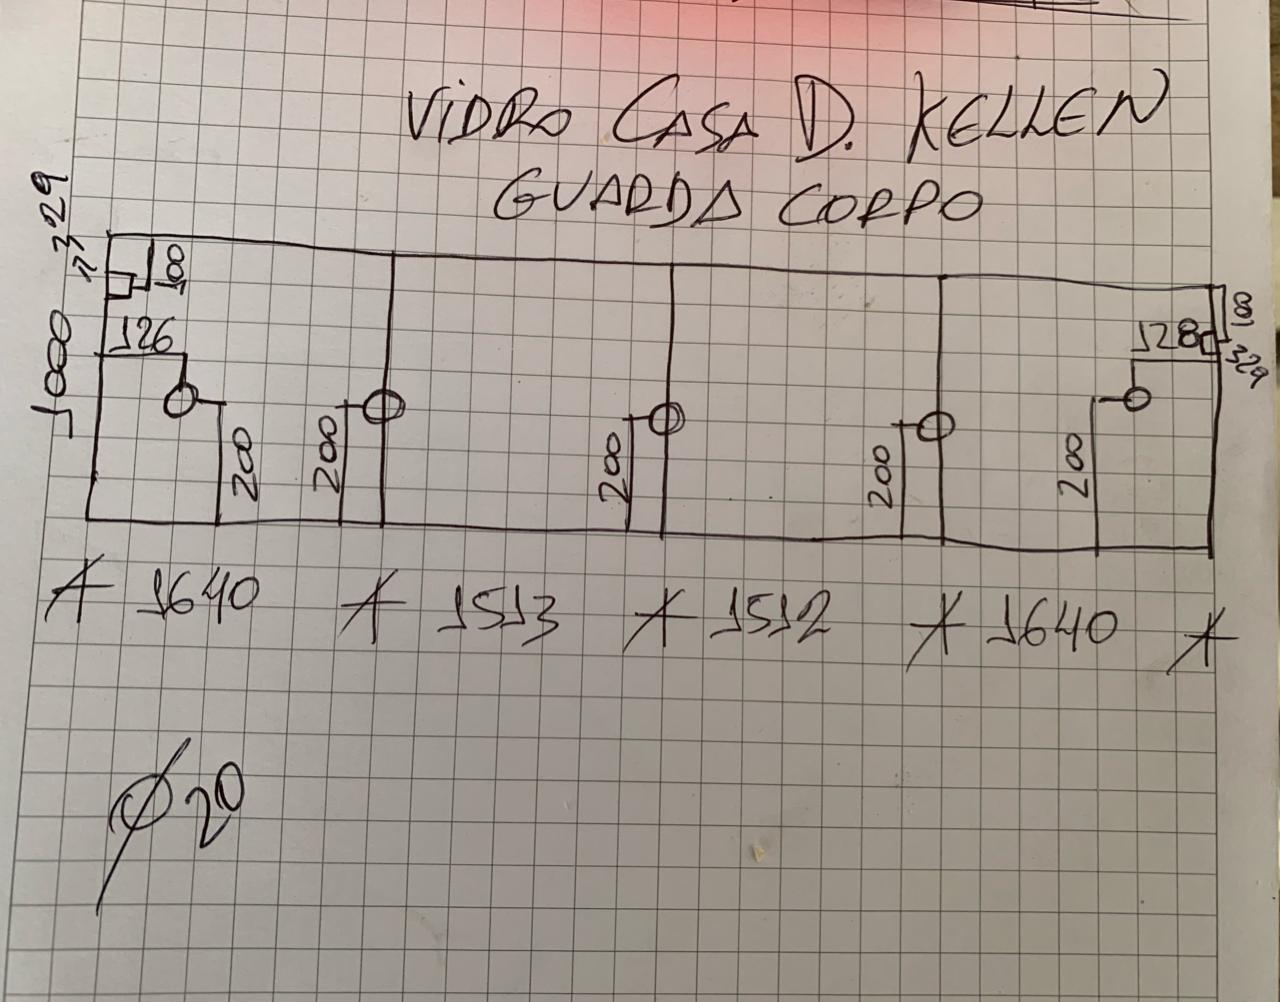 VIDRO CASA D. KELLEN
GUARDA CORPO
329
100
1000
126
200
200
200
200
200
128
100
329
1640
1513
1512
1640
Ø 20